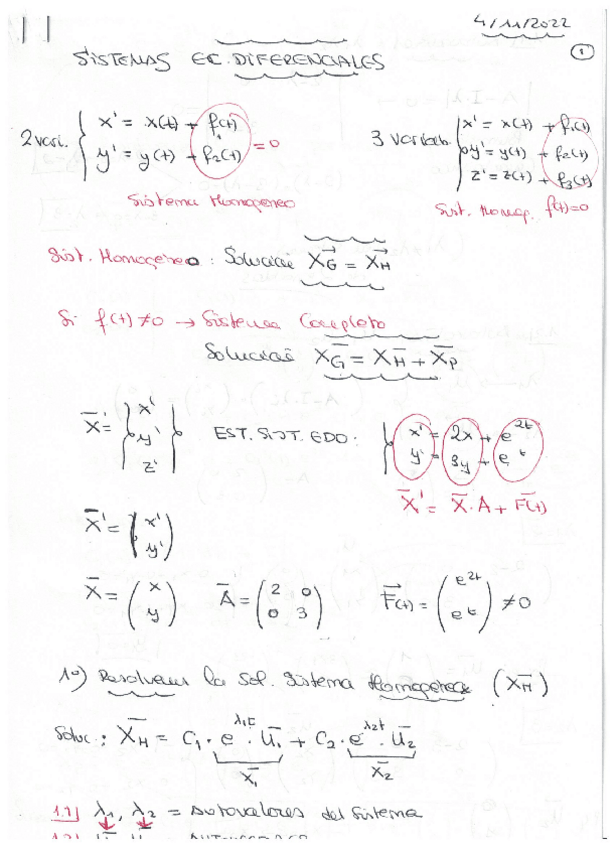 4/11/2022
1
SISTEMAS EC. DIFERENCIALES
2 vari. { x' = x(t) + f₁(t)
y' = y(t) + f₂(t) = 0
Sistema Homogeneo
3 variab. { x' = x(t) + f₁(t)
y' = y(t) + f₂(t)
z' = z(t) + f₃(t)
Sist. Homog. f(t)=0
Sist. Homogeneo: Solución X̄G = X̄H
Si f(t) ≠ 0 → Sistema Completo
Solución X̄G = X̄H + X̄P
X̄' = { x'
y'
z' }
EST. SIST. EDO: { x' = 2x + e^2t
y' = 3y + e^t
X̄' = X̄·A + F̄(t)
X̄' = ( x'
y' )
X̄ = ( x
y )
Ā = ( 2 0
0 3 )
F̄(t) = ( e^2t
e^t ) ≠ 0
1º) Resolvemos la Sol. Sistema Homogenea (X̄H)
Soluc.: X̄H = C₁ · e^λ₁t · ū₁ + C₂ · e^λ₂t · ū₂
X̄₁ X̄₂
1.1) λ₁, λ₂ = Autovalores del Sistema